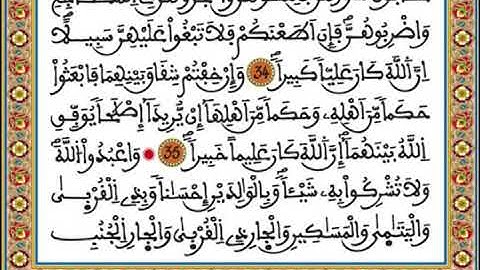 وَاضْرِبُوهُنَّ فَإِنَ اَطَعْنَكُمْ فَلاَ تَبْغُواْ عَلَيْهِنَّ سَبِيلاً
اِنَّ اَللَّهَ كَانَ عَلِيّاً كَبِيراً 34 وَإِنْ خِفْتُمْ شِقَاقَ بَيْنِهِمَا فَابْعَثُواْ
حَكَماً مِّنَ اَهْلِهِۦ وَحَكَماً مِّنَ اَهْلِهَا إِنْ يُّرِيدَا إِصْلَٰحاً يُوَفِّقِ
اِللَّهُ بَيْنَهُمَا إِنَّ اَللَّهَ كَانَ عَلِيماً خَبِيراً 35 وَاعْبُدُواْ اُللَّهَ
وَلاَ تُشْرِكُواْ بِهِۦ شَيْـٔاً وَبِالْوَٰلِدَيْنِ إِحْسَٰناً وَبِذِي اِلْقُرْبَىٰ
وَالْيَتَٰمَىٰ وَالْمَسَٰكِينِ وَالْجارِ ذِي اِلْقُرْبَىٰ وَالْجارِ اِلْجُنُبِ